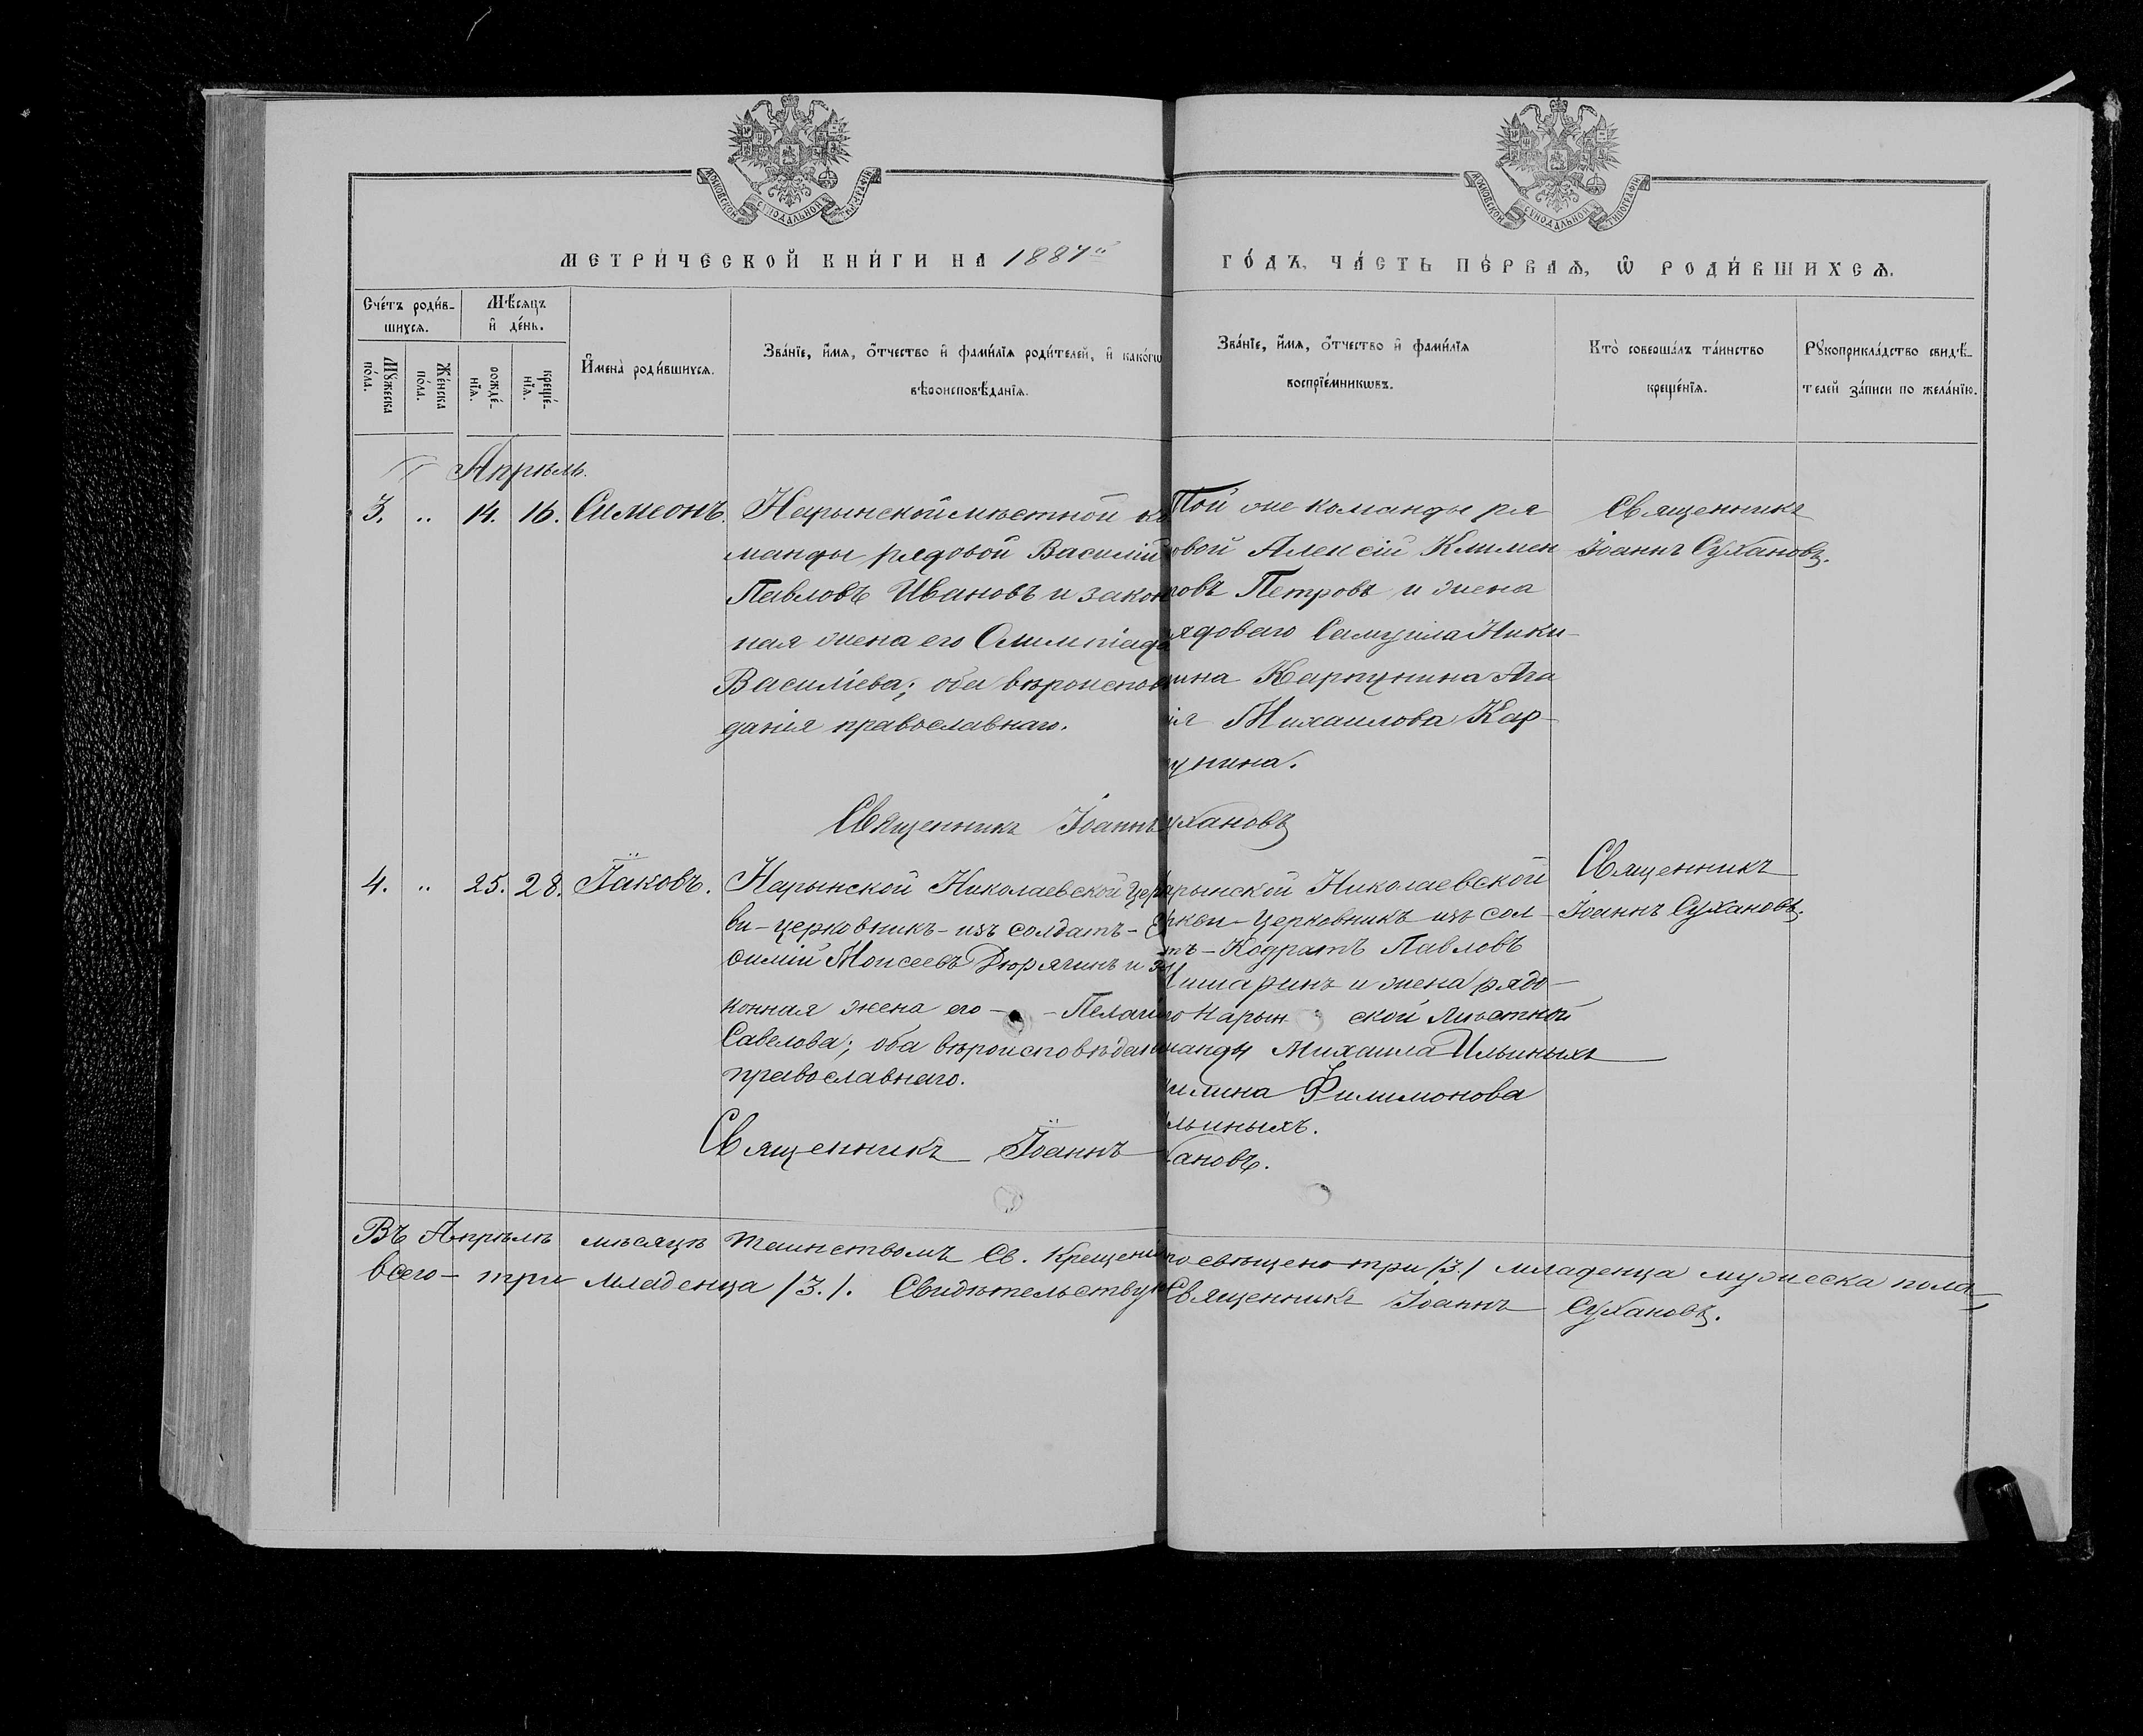 МОСКОВСКОЙ СѴНОДАЛЬНОЙ ТИПОГРАФІИ
МОСКОВСКОЙ СѴНОДАЛЬНОЙ ТИПОГРАФІИ
МЕТРИ́ЧЕСКОЙ КНИ́ГИ НА 1887й
ГО́ДЪ, ЧА́СТЬ ПЕ́РВАѦ, Ѡ РОДИ́ВШИХСѦ.
Сче́тъ роди́в-
шихсѧ.
Мѣ́сяцъ
и҆ де́нь.
Мꙋ́жеска
по́ла.
Же́нска
по́ла.
рожде́-
нїѧ.
креще́-
нїѧ.
И҆мена̀ роди́вшихсѧ.
Зва́нїе, и҆́мѧ, ѻ҆́тчество и҆ фами́лїѧ роди́телей, и҆ како́гѡ
вѣроисповѣ́данїѧ.
Зва́нїе, и҆́мѧ, ѻ҆́тчество и҆ фами́лїѧ
воспрїе́мникѡвъ.
Кто̀ соверша́лъ та́инство
креще́нїѧ.
Рꙋкоприкла́дство свидѣ́-
телей за́писи по жела́нїю.
Апрѣль.
3. „ 14. 16. Симеонъ.
Нарынской мѣстной ко
манды рядовой Василій
Павловъ Ивановъ и закон
ная жена его Олимпіада
Василіева; оба вѣроиспов
данія православнаго.
Той же команды ря
овой Алексій Климен
товъ Петровъ и жена
рядоваго Самуила Ники-
тина Карпунина Ага
ія Михаилова Кар-
пунина.
Священникъ
Іоаннъ Сухановъ.
Священникъ Іоаннъ ухановъ
4. „ 25. 28. Іаковъ.
Нарынской Николаевской Цер
ви-церковникъ-изъ солдатъ-
симій Моисеевъ Дюрягинъ и за
конная жена его - - Пелагі
Савелова; оба вѣроисповѣдан
православнаго.
арынской Николаевской
ркви-церковникъ изъ сол-
тъ-Кодратъ Павловъ
Чишаринъ и жена рядо-
го Нарын ской мѣстной
манды Михаила Ильиныхъ
Филимонова
льиныхъ.
Священникъ
Іоаннъ Сухановъ.
Священникъ Іоаннъ хановъ.
Въ Апрѣлѣ мѣсяцѣ таинствомъ Св. Крещені просвѣщено три /3./ младенца мужеска пола,
всего - три младенца /3./. Свидѣтельствую Священникъ Іоаннъ Сухановъ.